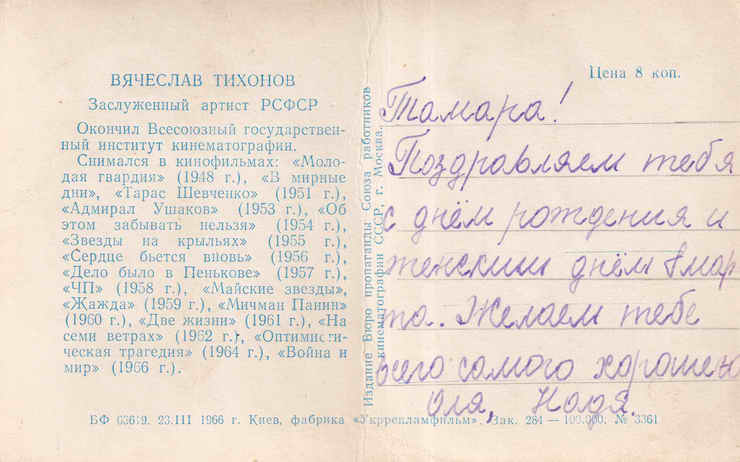 ВЯЧЕСЛАВ ТИХОНОВ
Заслуженный артист РСФСР
Окончил Всесоюзный государствен-
ный институт кинематографии.
Снимался в кинофильмах: «Моло-
дая гвардия» (1948 г.), «В мирные
дни», «Тарас Шевченко» (1951 г.),
«Адмирал Ушаков» (1953 г.), «Об
этом забывать нельзя» (1954 г.),
«Звезды на крыльях» (1955 г.),
«Сердце бьется вновь» (1956 г.),
«Дело было в Пенькове» (1957 г.),
«ЧП» (1958 г.), «Майские звезды»,
«Жажда» (1959 г.), «Мичман Панин»
(1960 г.), «Две жизни» (1961 г.), «На
семи ветрах» (1962 г.), «Оптимисти-
ческая трагедия» (1964 г.), «Война и
мир» (1966 г.).
Издание Бюро пропаганды Союза работников
кинематографии СССР, г. Москва.
Цена 8 коп.
Тамара!
Поздравляем тебя
с днём рождения и
женским днём 8 мар
та. Желаем тебе
всего самого хорошего
Оля, Надя.
БФ 03619. 23.III 1966 г. Киев, фабрика «Укррекламфильм». Зак. 284 — 100.000. № 3361